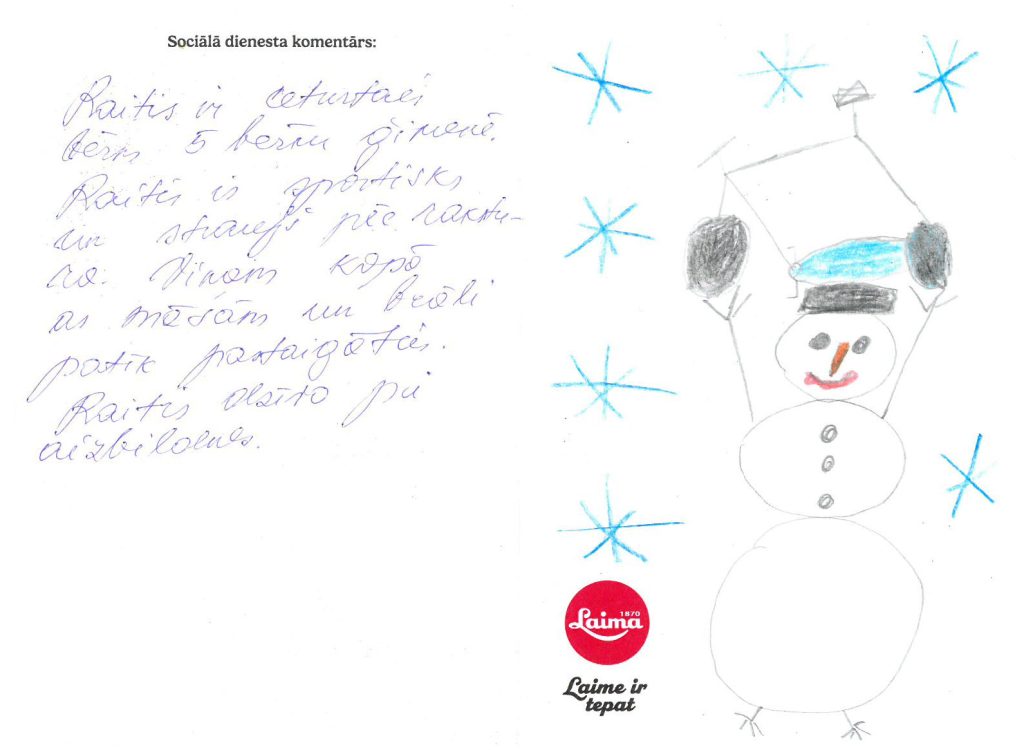 Sociālā dienesta komentārs:
Raitis ir ceturtais
bērns 5 bērnu ģimenē.
Raitis ir sportisks
un straujš pēc rakstu-
ra. Viņam kopā
as māsām un brāli
patīk pastaigāties.
Raitis dzīvo pie
aizbildnes.
1870
Laima
Laime ir
tepat